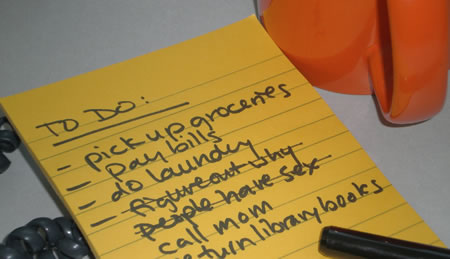 TO DO:
- pick up groceries
- pay bills
- do laundry
- figure out why
people have sex
call mom
return library books